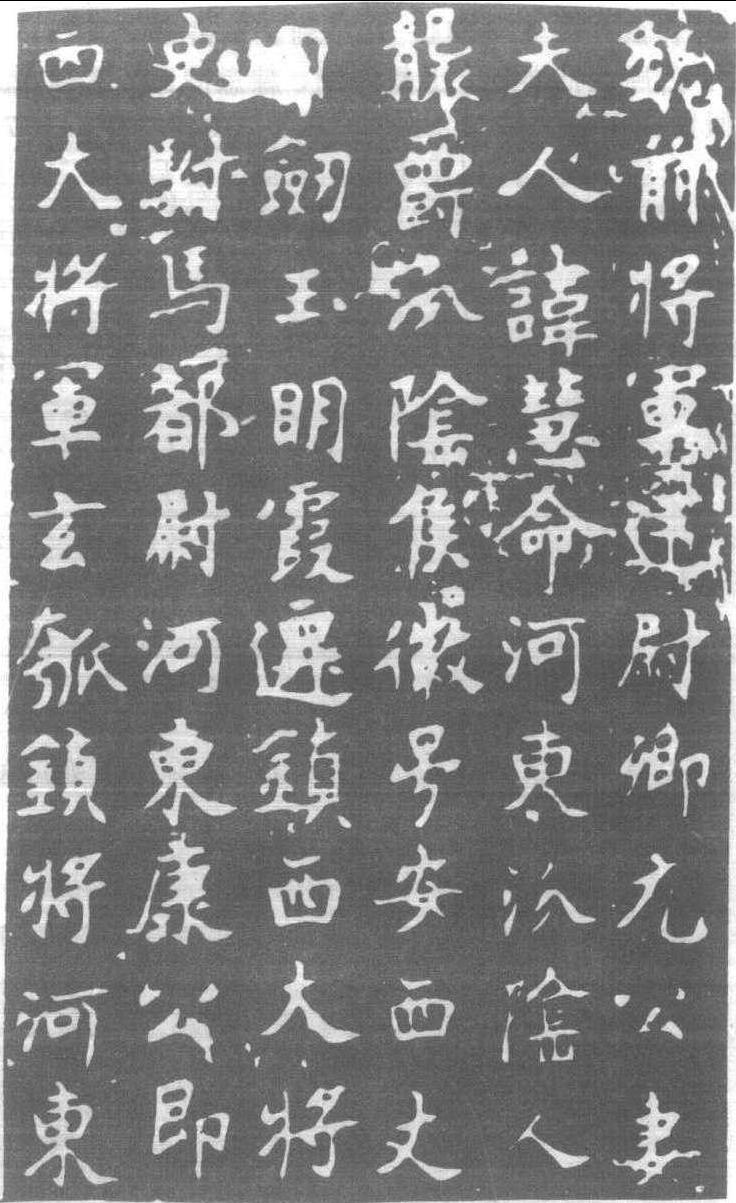 前將軍廷尉卿元公妻
夫人諱慧命河東汾陰人
襲爵汾陰侯徽号安西丈
劒玉明霞遷鎮西大將
史駙馬都尉河東康公即
西大將軍玄瓠鎮將河東